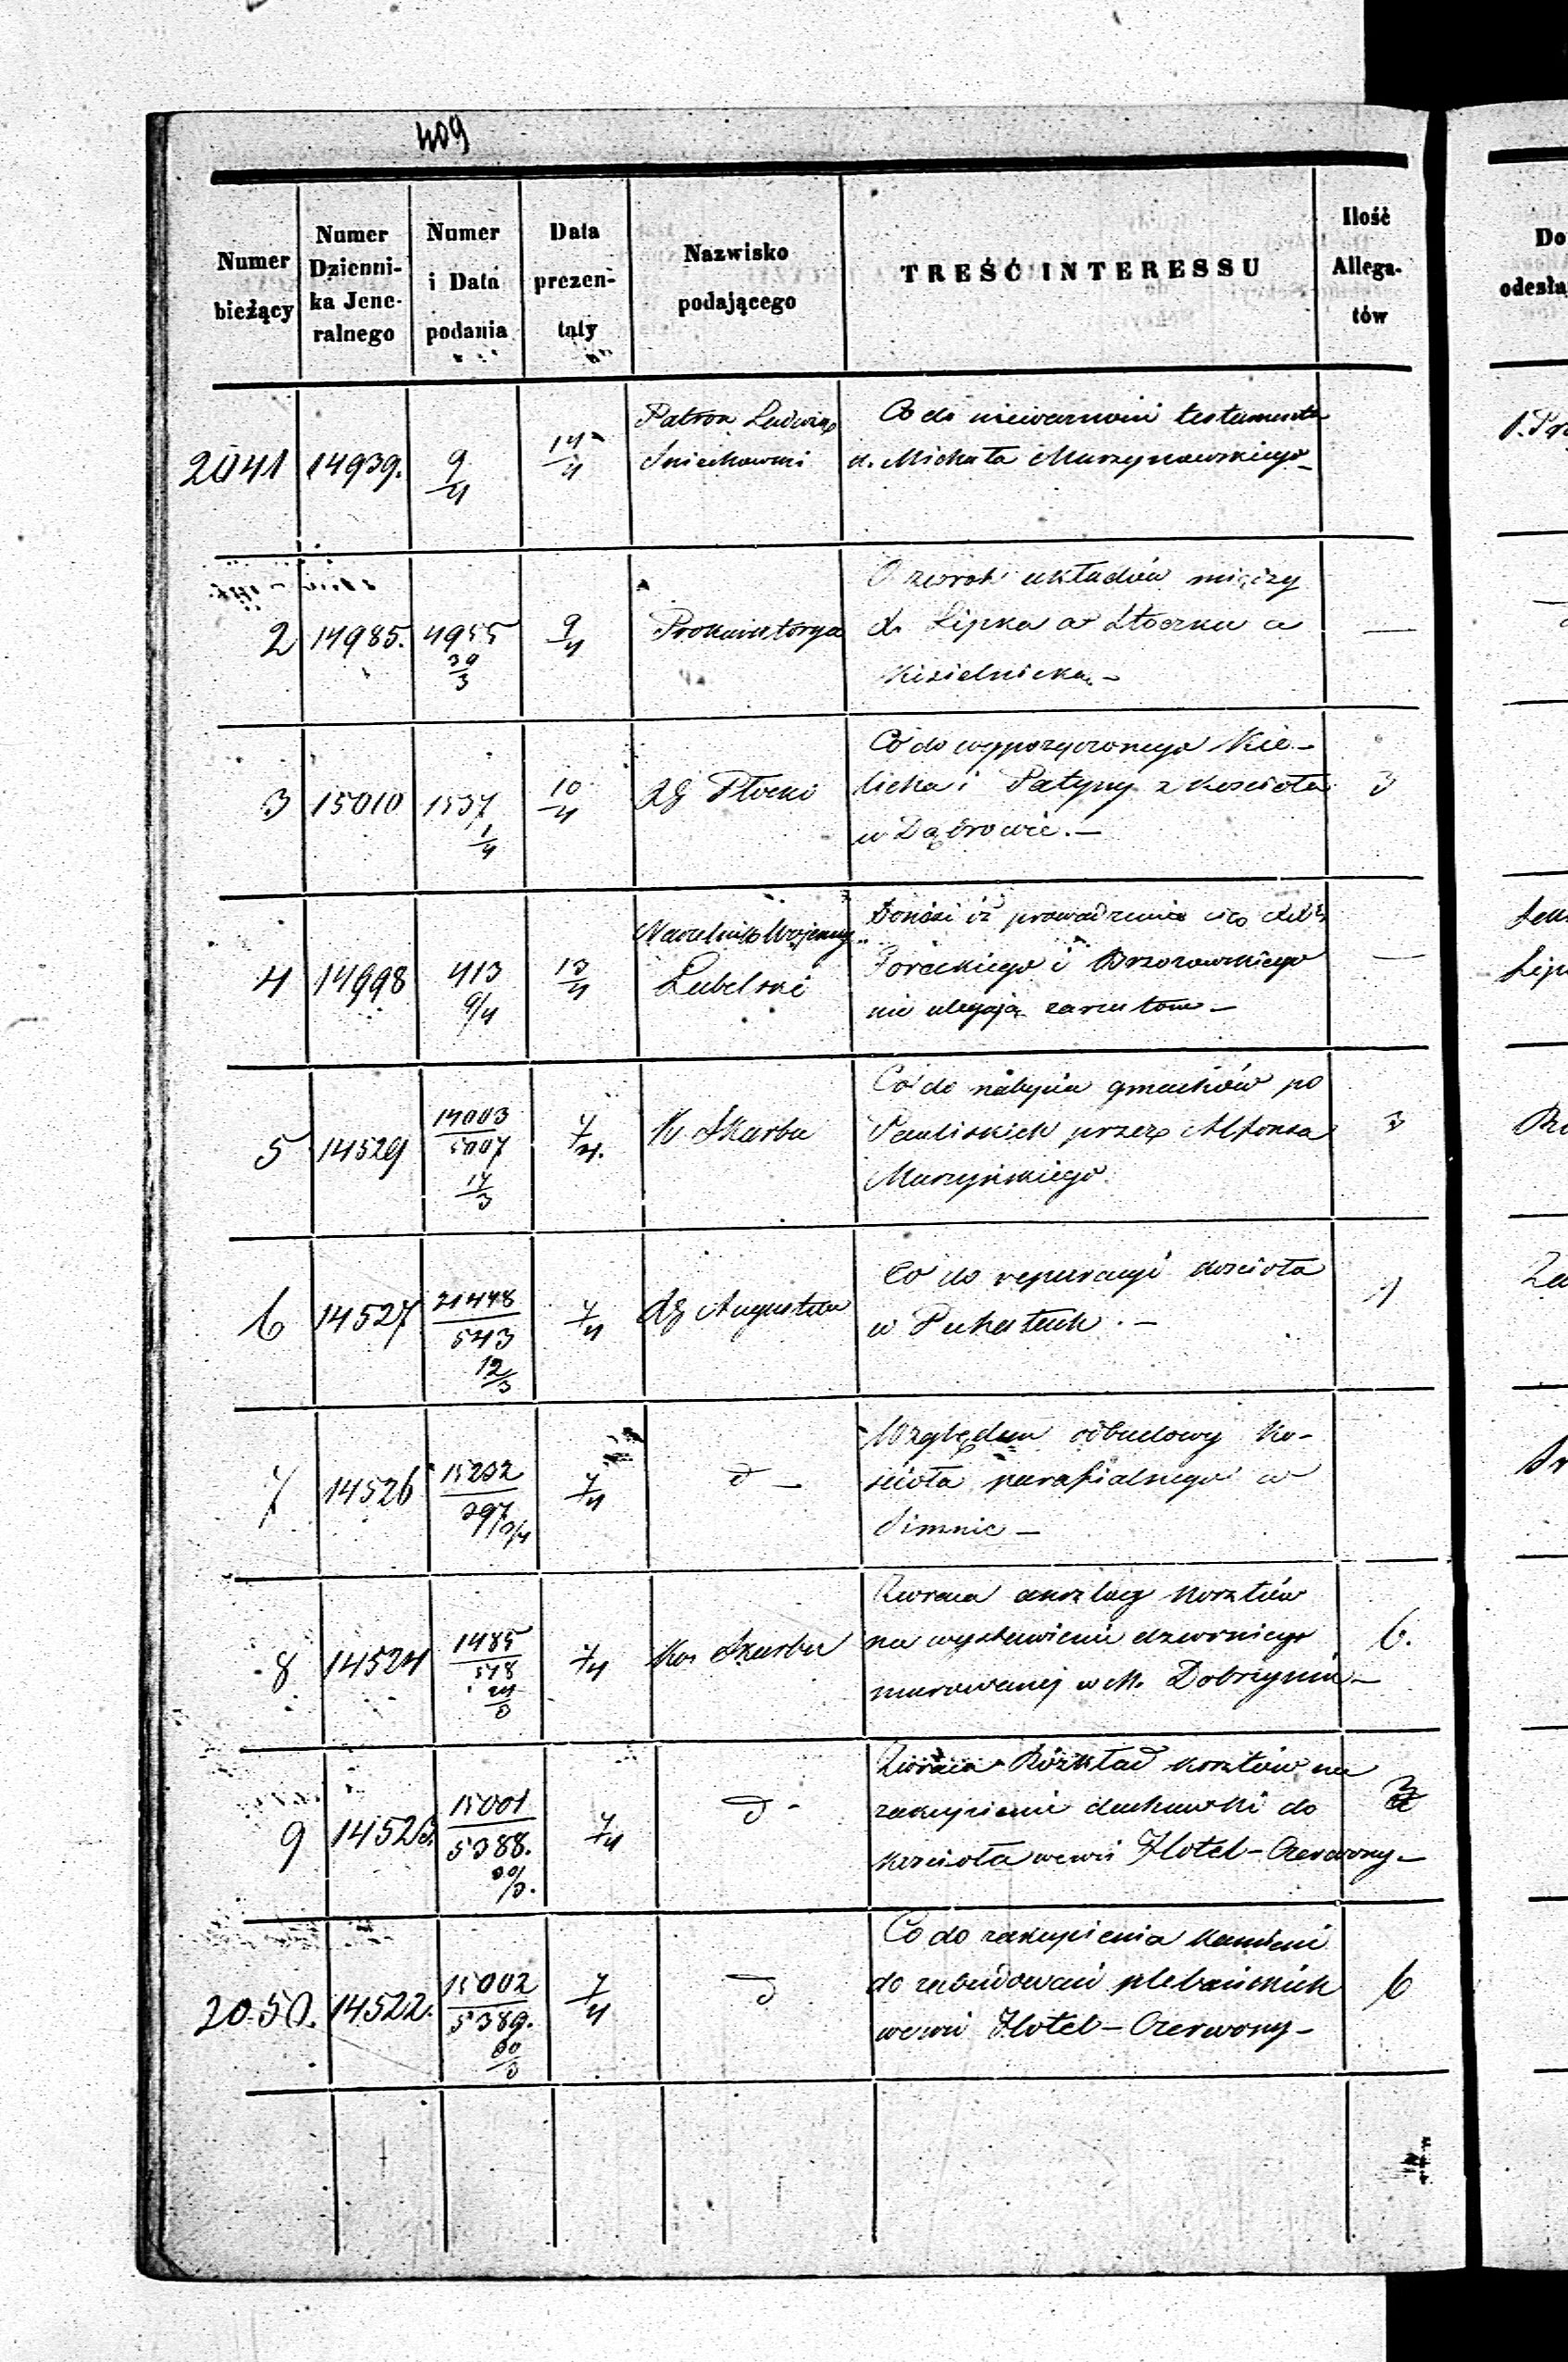 409
Numer bieżący | Numer Dziennika Jeneralnego | Numer i Data podania | Data prezentaty | Nazwisko podającego | TREŚĆ INTERESSU | Ilość Allegatów
2041 | 14939. | 9/4 | 14/4 | Patron Ludwig | Co do testamentu
d. Michała Murzynowskiego
2 | 14985. | 4955 30/3 | 9/4 | Prokuratorya | O zwrot układów między
d. Lipka a Stoczka a —
Kisielnicka. —
3 | 15010 | 1537 1/4 | 10/4 | RG Płocki | Co do wypożyczonego Kie-
licha i Patyny z kościoła | 3
w Dąbrowie. —
4 | 14998 | 413 9/4 | 13/4 | Naczelnik Wojenny | Donosi iż prowadzenie się
Lubelski | i Brzozowskiego —
nie ulegają zarzutom —
5 | 14529 | 14003/5007 14/3 | 7/4. | K. Skarbu | Co do nabycia gmachów po
Paulińskich przez Alfonsa | 3
Murzyńskiego.
6 | 14527 | 21448/543 12/3 | 7/4 | RG Augustow | Co do reperacyi kościoła
w Puhałach. —
7 | 14526 | 15202/297 | 7/4 | d — | Względem odbudowy Ko-
ścioła parafialnego w
Simnie —
8 | 14524 | 1485/578 | 7/4 | Kom Skarbu | Zwraca anszlag kosztów
na wystawienie dzwonnicy | 6.
murowanej w M. Dobrzyniu —
9 | 14523. | 15001/5388. 20/3. | 7/4 | d - | Zwraca Rozkład kosztów na
zakupienie dachówki do | 3
kościoła we wsi Hotel-Czerwony —
2050. | 14522. | 15002/5389. 20/3 | 7/4 | d | Co do zakupienia kamieni
do zabudowań plebańskich | 6
we wsi Hotel-Czerwony —
Do
odesła